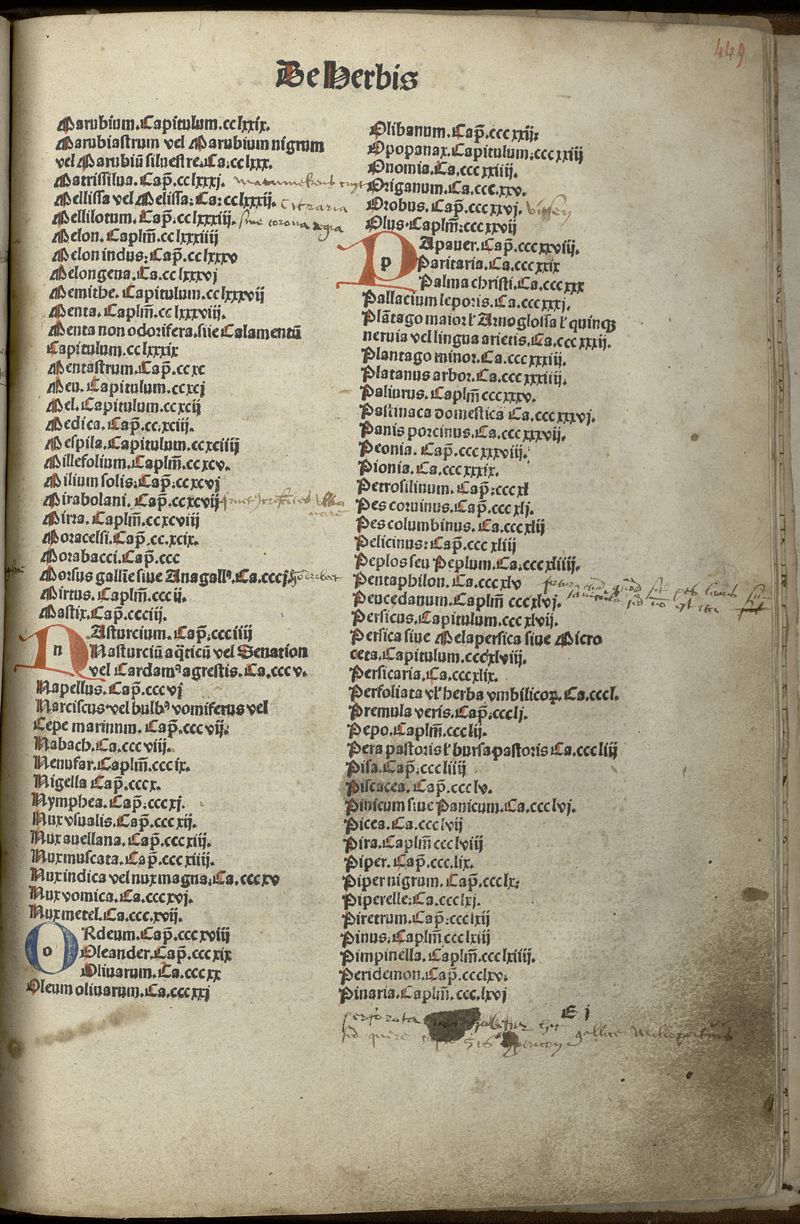 449
De Herbis
Marubium. Capitulum. cclxxix.
Marubiastrum vel Marubium nigrum
vel Marubiū siluestre. Ca. cclxxx.
Matrissilua. Cap̄. cclxxxj.
Mellissa vel Melissa. Ca. cclxxxij. Citraria
Mellilotum. Cap̄. cclxxxiij. siue corona regia
Melon. Caplm̄. cclxxxiiij
Melon indus: Cap̄. cclxxxv
Melongena. Ca. cclxxxvj
Memithe. Capitulum. cclxxxvij
Menta. Caplm̄. cclxxxviij.
Menta non odorifera. siue Calamentū
Capitulum. cclxxxix
Mentastrum. Cap̄. ccxc
Meu. Capitulum. ccxcj
Mel. Capitulum. ccxcij
Medica. Cap̄. cc.xciij.
Mespila. Capitulum. ccxciiij
Millefolium. Caplm̄. ccxcv.
Milium solis: Cap̄. ccxcvj
Mirabolani. Cap̄. ccxcvij
Mirra. Caplm̄. ccxcviij
Moracelsi. Cap̄. cc.xcix.
Morabacci. Cap̄. ccc
Morsus galline siue Anagallꝰ. Ca. cccj.
Mirtus. Caplm̄. cccij.
Mastix. Cap̄. ccciij.
n Asturcium. Cap̄. ccciiij
Nasturciū aq̄ticū vel Senation
vel Cardamꝰ agrestis. Ca. cccv.
Napellus. Cap̄. cccvj
Narciscus vel bulbꝰ vomiferus vel
Cepe marinum. Cap̄. cccvij.
Nabach. Ca. cccviij.
Nenufar. Caplm̄. cccix.
Nigella Cap̄. cccx.
Nymphea. Cap̄. cccxj.
Nux vsualis. Cap̄. cccxij.
Nux auellana. Cap̄. cccxiij.
Nux muscata. Cap̄. cccxiiij.
Nux indica vel nux magna. Ca. cccxv
Nux vomica. Ca. cccxvj.
Nux metel. Ca. ccc.xvij.
o Rdeum. Cap̄. cccxviij
Oleander. Cap̄. cccxix
Oliuarum. Ca. cccxx
Oleum oliuarum. Ca. cccxxj
Olibanum. Cap̄. cccxxij:
Opopanax. Capitulum: cccxxiij
Onomia. Ca. cccxxiiij.
Origanum. Ca. ccc.xxv.
Orobus. Cap̄. cccxxvj.
Olus. Caplm̄: cccxxvij
p Apauer. Cap̄. cccxxviij.
Paritaria. Ca. cccxxix
Palma christi. Ca. cccxxx
Pallacium leporis. Ca. cccxxxj.
Plātago maior ł Arnoglossa ł quinq̄
neruia vel lingua arietis. Ca. cccxxxij.
Plantago minor. Ca. cccxxxiij.
Platanus arbor. Ca. cccxxxiiij.
Paliurus. Caplm̄ cccxxxv.
Pastinaca domestica Ca. cccxxxvj.
Panis porcinus. Ca. cccxxxvij.
Peonia. Cap̄. cccxxxviij.
Pionia. Ca. cccxxxix.
Petrosilinum. Cap̄: cccxl
Pes coruinus. Cap̄. cccxlj.
Pes columbinus. Ca. cccxlij
Pelicinus: Cap̄. cccxliij
Peplos seu Peplum. Ca. cccxliiij.
Pentaphilon. Ca. cccxlv
Peucedanum. Caplm̄ cccxlvj.
Persicus. Capitulum. cccxlvij.
Persica siue Melapersica siue Micro
ceta. Capitulum. cccxlviij.
Persicaria. Ca. cccxlix.
Perfoliata vł herba vmbilicoꝝ. Ca. cccl.
Premula veris. Cap̄: cccl j.
Pepo. Caplm̄. ccclij.
Pera pastoris ł bursa pastoris Ca. cccliij
Pisa. Cap̄: cccliiij
Piscacea. Cap̄. ccclv.
Piniscum siue Panicum. Ca. ccclvj.
Picea. Ca. ccclvij
Pira. Caplm̄ ccclviij
Piper. Cap̄. ccc.lix.
Piper nigrum. Cap̄. ccclx:
Piperelle. Ca. ccclxj.
Piretrum. Cap̄: ccclxij
Pinus. Caplm̄ ccclxiij
Pimpinella. Caplm̄. ccclxiiij.
Peridemon. Cap̄. ccclxv.
Pinaria. Caplm̄. ccc.lxvj
E j
perforata